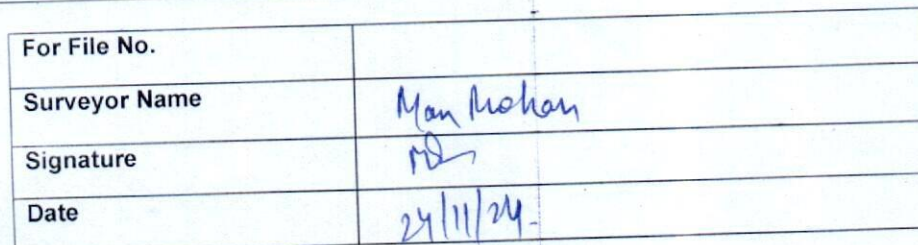 For File No.
Surveyor Name Man Mohan
Signature
Date 24/11/24.